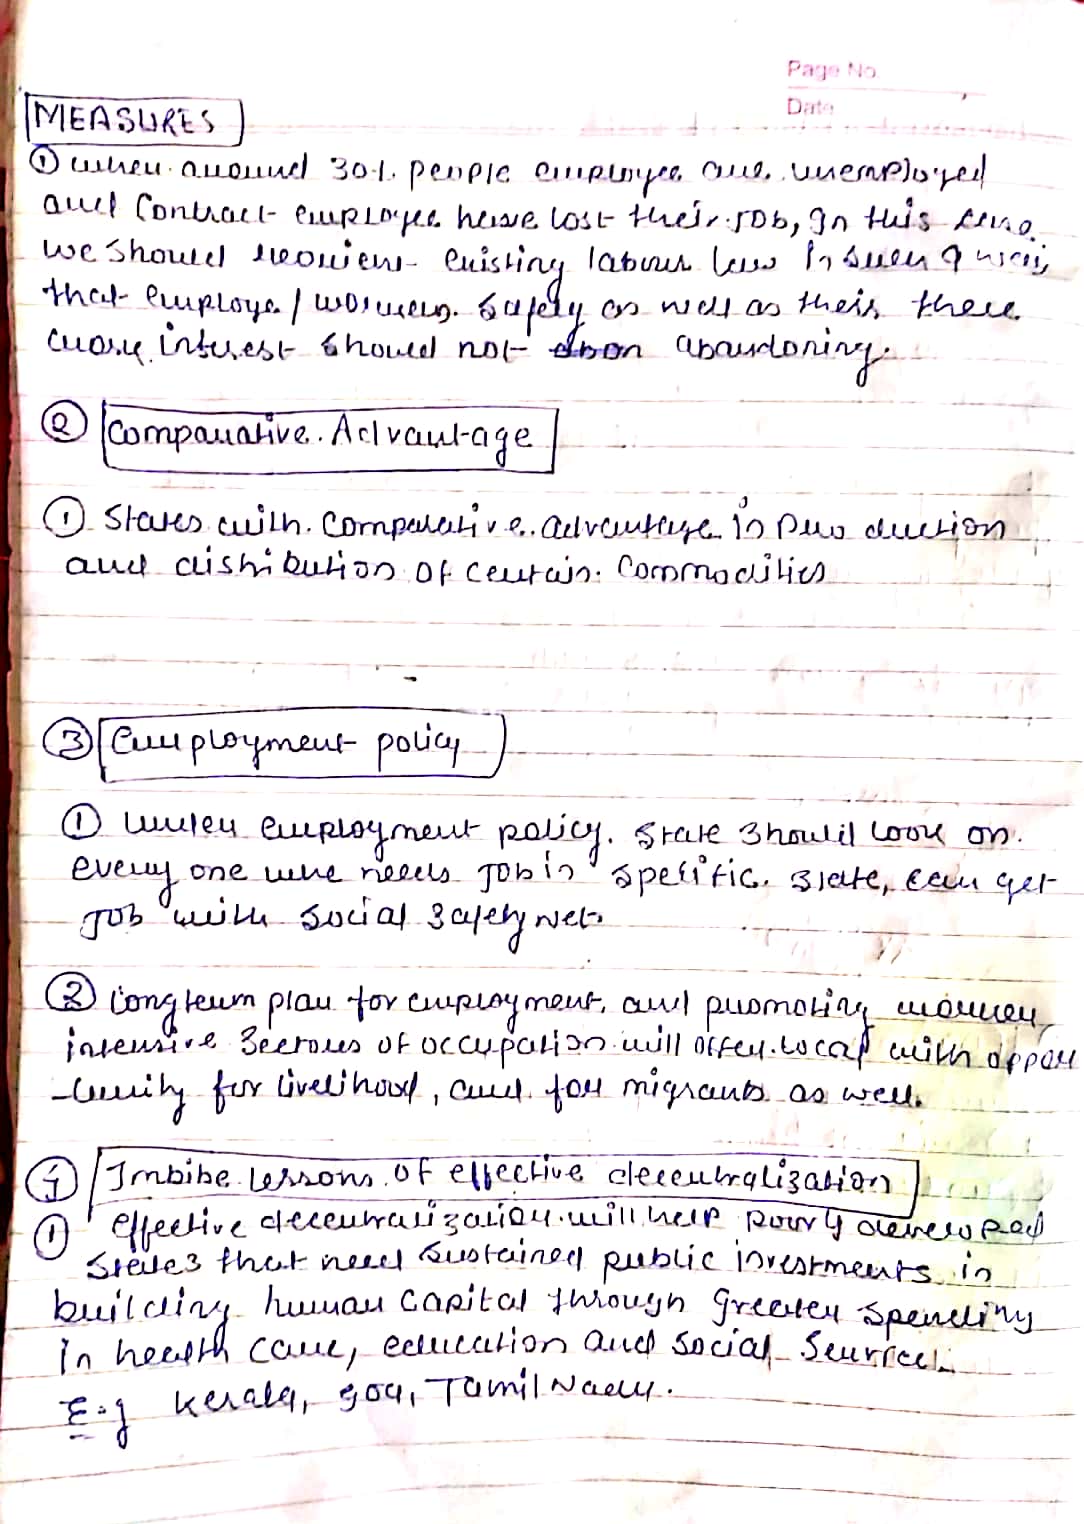 Page No
Date
MEASURES
① when around 30%. people employee are unemployed
and Contract employee have lost their job, In this
we should existing labour law in such a way
that employe / workers. safety as well as their there
interest should not abandoning.
② Comparative Advantage
① States with comparative advantage in production
and distribution of certain commodities
③ Employment policy
① Under employment policy. State should look on
every one who needs job in specific state, can get
job with social safety net.
② Long term plan for employment, and promoting
intensive sectors of occupation will offer local with oppor
-tunity for livelihood, and for migrants as well.
④ Imbibe lessons of effective decentralization
① effective decentralization will help poorly developed
states that need sustained public investments in
building human capital through greater spending
in health care, education and social
E.g Kerala, goa, Tamil Nadu.